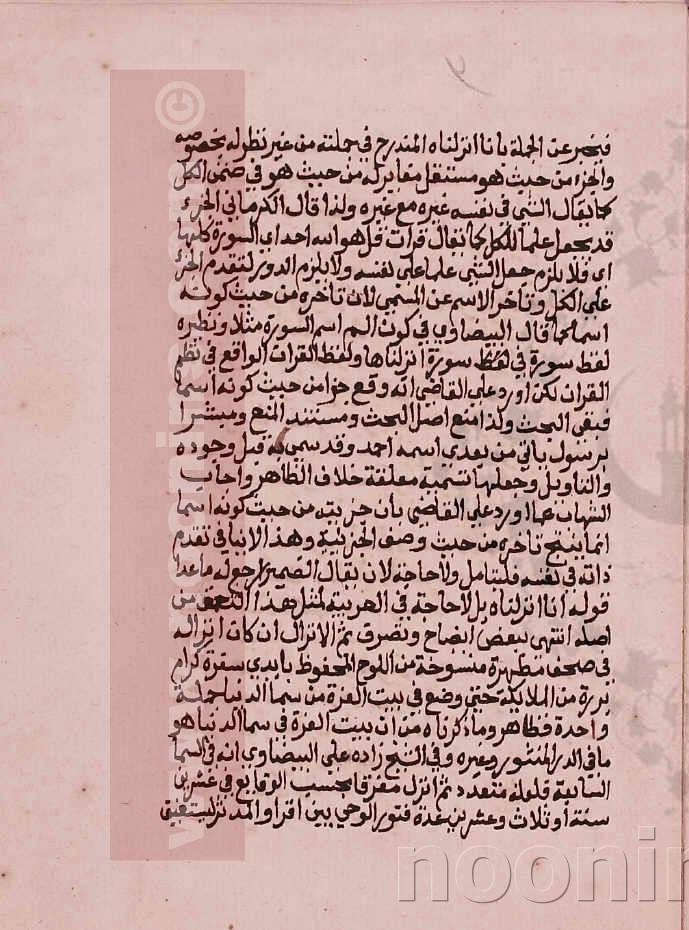 فنخبر عن الجملة بانا انزلناه المندرج في جملته من غير نظر له بخصوصه
والجزء من حيث هو مستقل مغاير له من حيث هو في ضمن الكل
كما يقال الشي في نفسه غيره مع غيره ولذا قال الكرماني الجزء
قد يجعل علما للكل كما يقال قرات قل هو الله احد اي السورة كلها
اي فلا يلزم جعل الشي علما علي نفسه ولا يلزم الدور لتقدم الجزء
علي الكل وتاخر الاسم عن المسمي لان تاخره من حيث كونه
اسما كما قال البيضاوي في كون الم اسم السورة مثلا ونظيره
لفظ سورة في لفظ سورة انزلناها ولفظ القران الواقع في نظم
القران لكن اورد علي القاضي انه وقع جزا من حيث كونه اسما
فبقي البحث ولذا منع اصل البحث ومستند المنع ومبشرا
برسول ياتي من بعدي اسمه احمد وقد سمي به قبل وجوده
والتاويل وجعلها تسمية معلقة خلاف الظاهر واجاب
الشهاب عما اورد علي القاضي بان جزييته من حيث كونه اسما
انما ينتج تاخره من حيث وصف الجزئية وهذا لا ينافي تقدم
ذاته في نفسه فليتامل ولا حاجة لان يقال الضمير راجع له ما عدا
قوله انا انزلناه بل لا حاجة في العربية لمثل هذا التعمق من
اصله انتهي ببعض ايضاح وتصرف ثم الانزال ان كان انزاله
في صحف مطهرة منسوخة من اللوح المحفوظ بايدي سفرة كرام
بررة من الملايكة حتي وضع في بيت العزة من سما الدنيا جملة
واحدة فظاهر وما ذكرناه من ان بيت العزة في سما الدنيا هو
ما في الدر المنثور وغيره وفي الشيخ زاده علي البيضاوي انه في السما
السابعة فلعله متعدد ثم انزل مفرقا بحسب الوقايع في عشرين
سنة او ثلاث وعشرين عدة فتور الوحي بين اقرا والمدثر
noonin